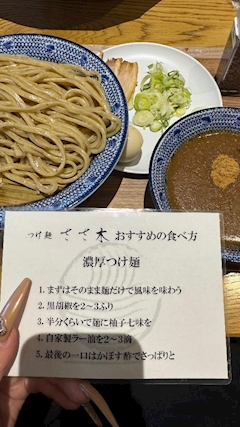 つけ麺 ささ木 おすすめの食べ方
濃厚つけ麺
1. まずはそのまま麺だけで風味を味わう
2. 黒胡椒を2〜3ふり
3. 半分くらいで麺に柚子七味を
4. 自家製ラー油を2〜3滴
5. 最後の一口はかぼす酢でさっぱりと